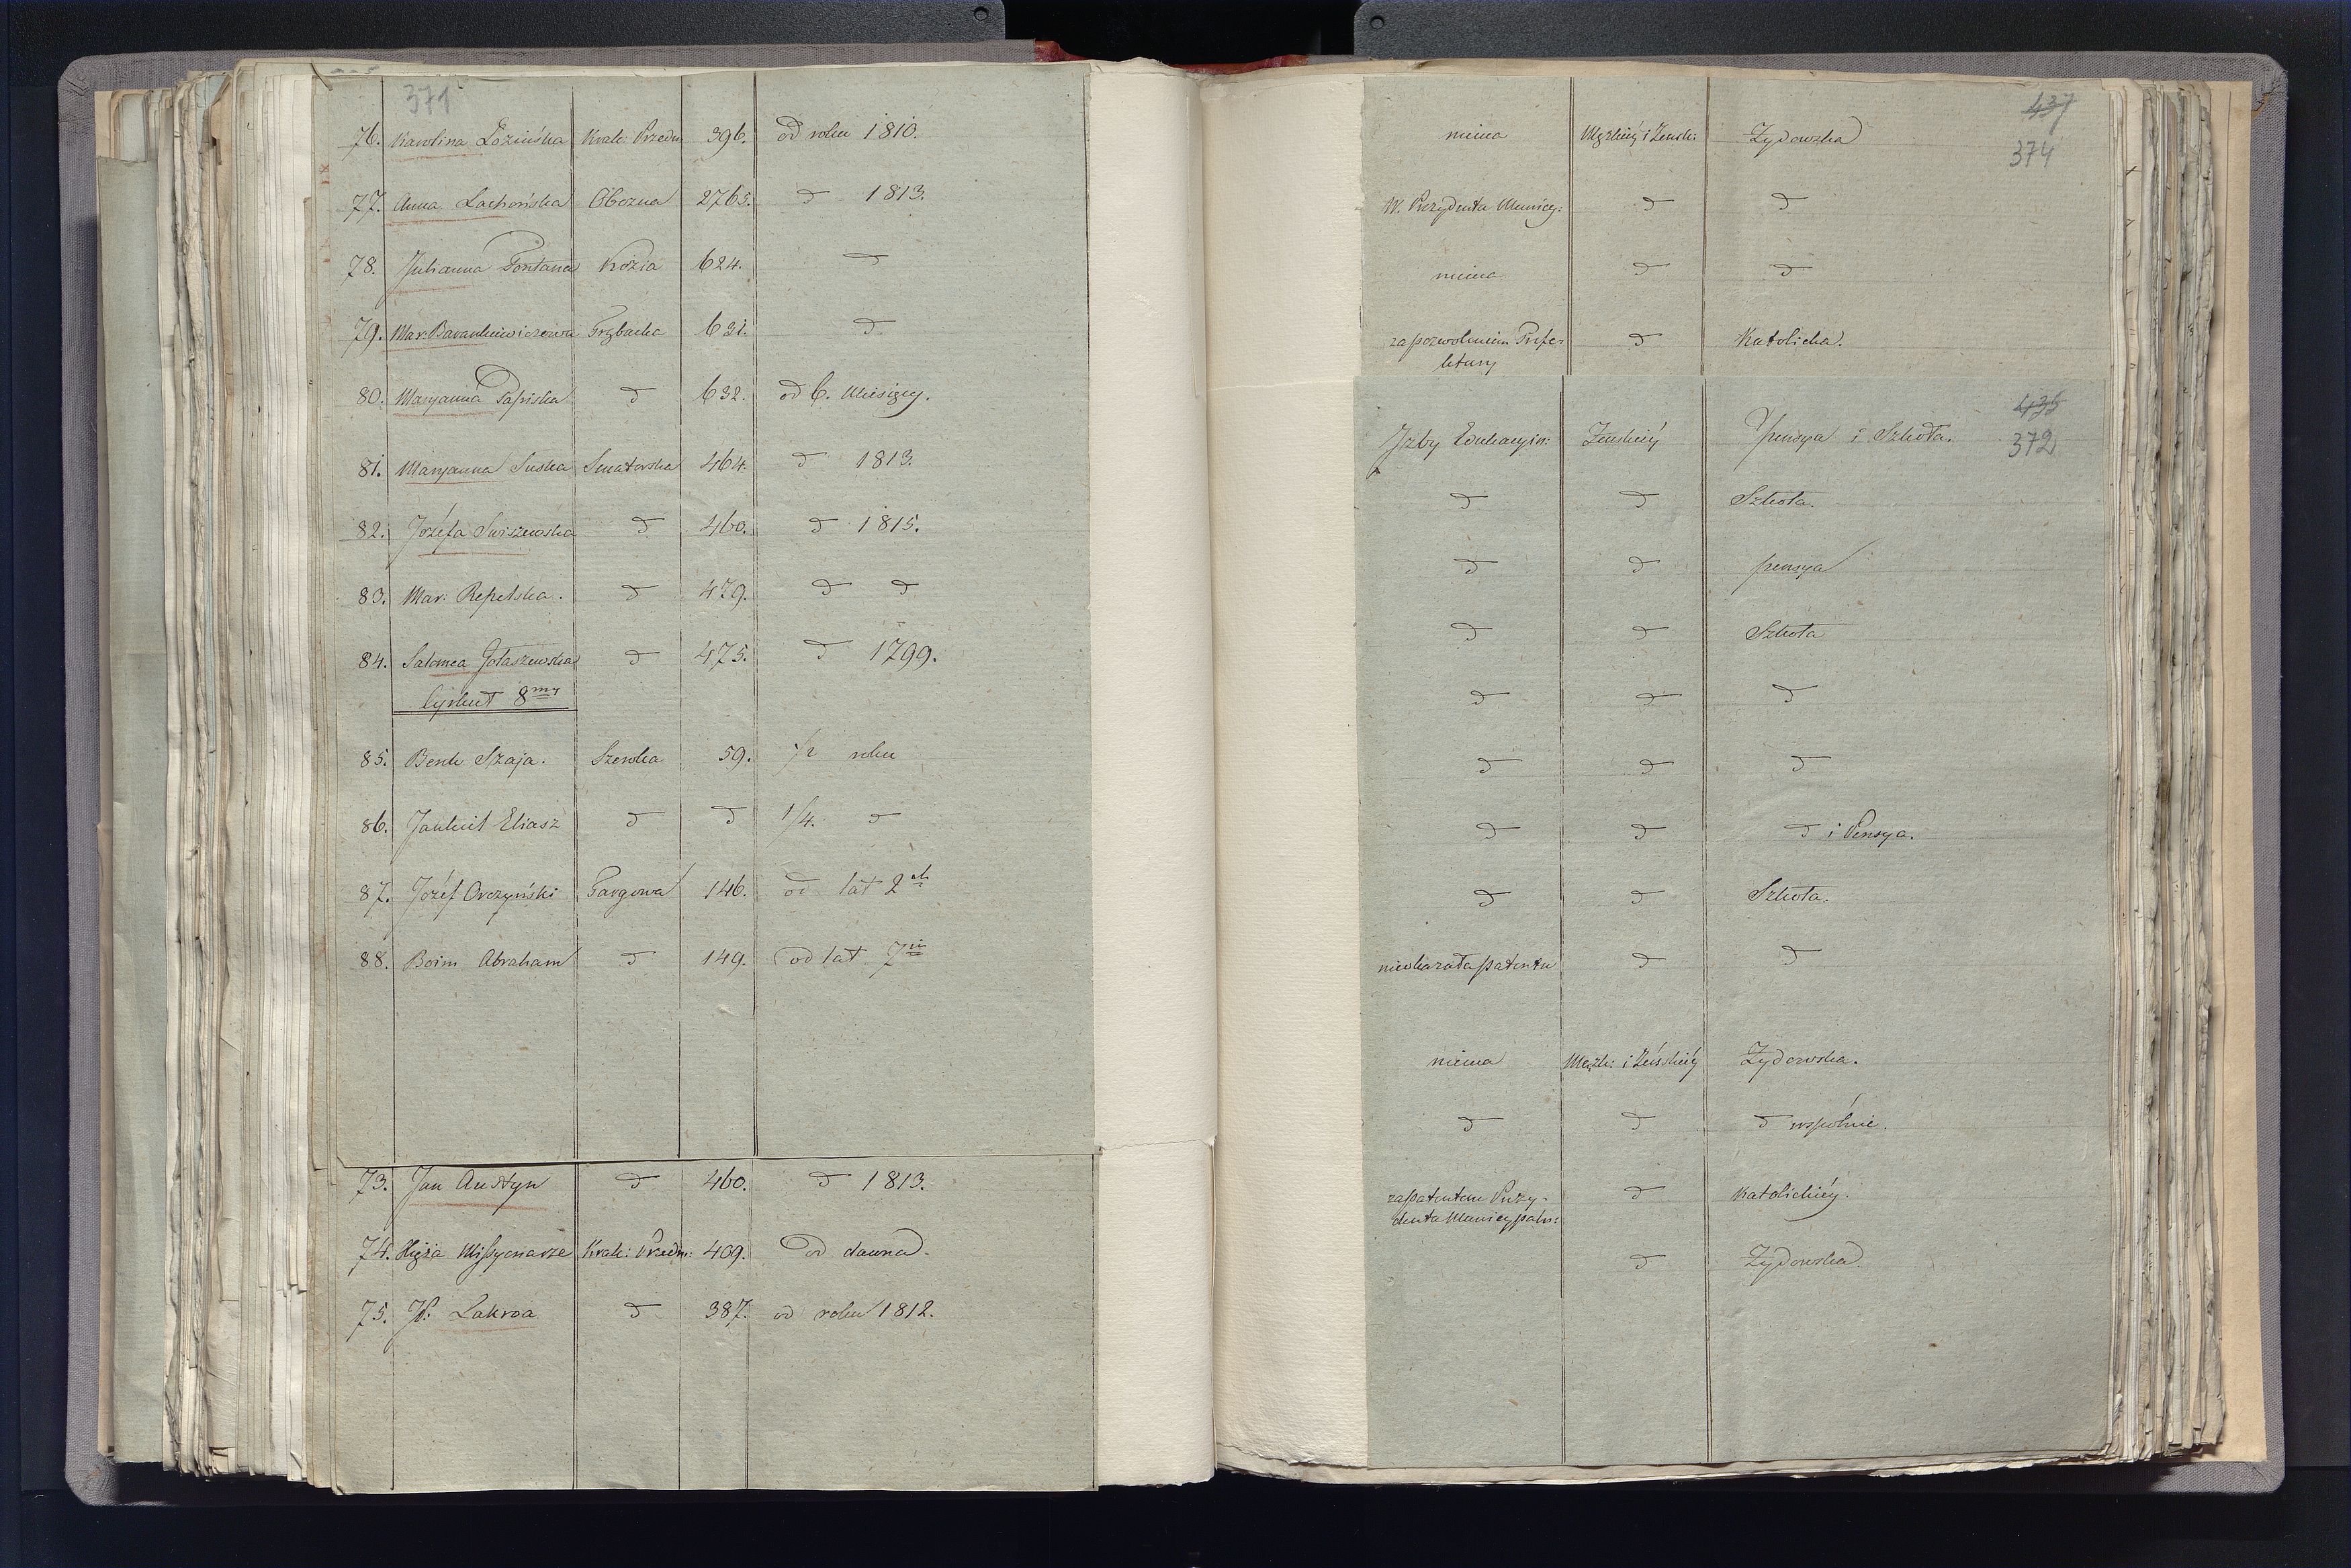 371
76. Karolina Łozińska Krak: Przedm: 396. od roku 1810.
77. Anna Lachońska Oboźna 2765. d 1813.
78. Julianna Fontana Kozia 624. d
79. Mar: Barankiewiczowa Trębacka 631. d
80. Maryanna Papiska d 632. od 6. Miesięcy.
81. Maryanna Suska Senatorska 464. d 1813.
82. Józefa Swiszewska d 460. d 1815.
83. Mar: Repelska. d 479. d d
84. Salomea Gołaszewska d 475. d 1799.
Cyrkuł 8my
85. Berek Szaja. Szeroka 59. 1/2 roku
86. Jankiel Eliasz d d 1/4. d
87. Józef Orczyński Targowa 146. od lat 2ch
88. Boim Abraham d 149. od lat 7miu
73. Jan Austyn d 460. d 1813.
74. Xięża Missyonarze Krak: Przedm: 409. Od dawna.
75. JP: Lakroa d 387. od roku 1812.
437
374
niema Męzkiéy i Żensk: Żydowska
W. Prezydenta Municy: d d
niema d d
za pozwoleniem Prefe-
ktury d Katolicka.
435
372
Jzby Edukacyin: Żeńskiéy pensya i Szkoła.
d d Szkoła.
d d pensya
d d Szkoła
d d d
d d d
d d d i Pensya.
d d Szkoła.
nieokazała patentu d d
niema Męzk: i Żeńskiéy Żydowska.
d d d wspólnie.
za patentem Prezy-
denta Municypaln: d Katolickiéy.
d Żydowska.